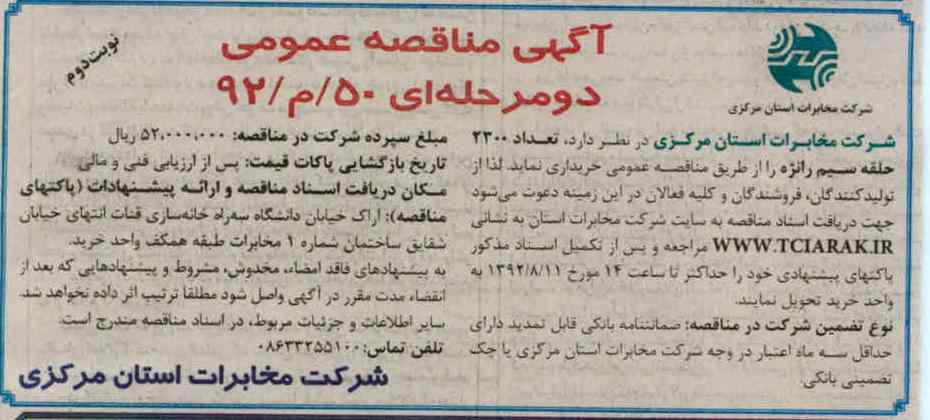 آگهی مناقصه عمومی
دومرحله‌ای ۵۰/م/۹۲
نوبت دوم
شرکت مخابرات استان مرکزی
شرکت مخابرات استان مرکزی در نظر دارد، تعداد ۲۳۰۰
حلقه سیم رانژه را از طریق مناقصه عمومی خریداری نماید. لذا از
تولیدکنندگان، فروشندگان و کلیه فعالان در این زمینه دعوت می‌شود
جهت دریافت اسناد مناقصه به سایت شرکت مخابرات استان به نشانی
WWW.TCIARAK.IR مراجعه و پس از تکمیل اسناد مذکور
پاکتهای پیشنهادی خود را حداکثر تا ساعت ۱۴ مورخ ۱۳۹۲/۸/۱۱ به
واحد خرید تحویل نمایند.
نوع تضمین شرکت در مناقصه: ضمانتنامه بانکی قابل تمدید دارای
حداقل سه ماه اعتبار در وجه شرکت مخابرات استان مرکزی یا چک
تضمینی بانکی.
مبلغ سپرده شرکت در مناقصه: ۵۲,۰۰۰,۰۰۰ ریال
تاریخ بازگشایی پاکات قیمت: پس از ارزیابی فنی و مالی
مکان دریافت اسناد مناقصه و ارائه پیشنهادات (پاکتهای
مناقصه): اراک خیابان دانشگاه سه‌راه خانه‌سازی قنات انتهای خیابان
شقایق ساختمان شماره ۱ مخابرات طبقه همکف واحد خرید.
به پیشنهادهای فاقد امضاء، مخدوش، مشروط و پیشنهادهایی که بعد از
انقضاء مدت مقرر در آگهی واصل شود مطلقا ترتیب اثر داده نخواهد شد.
سایر اطلاعات و جزئیات مربوط، در اسناد مناقصه مندرج است.
تلفن تماس: ۰۸۶۳۳۲۵۵۱۰۰
شرکت مخابرات استان مرکزی